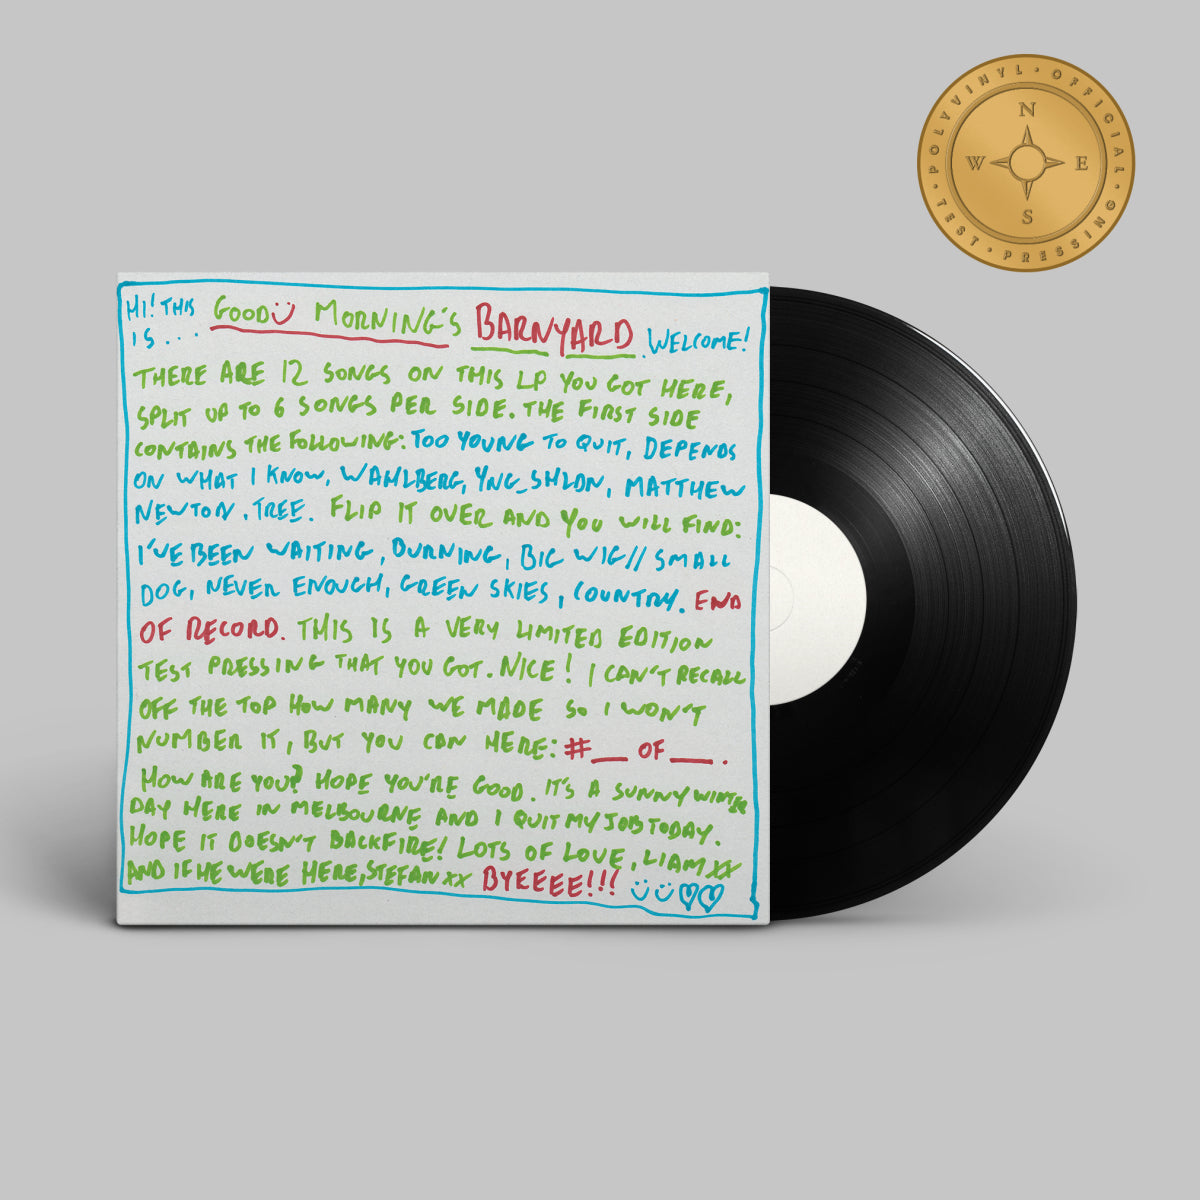 POLYVINYL • OFFICIAL • TEST • PRESSING •
N
W E
S
HI! THIS IS... GOOD MORNING'S BARNYARD. WELCOME!
THERE ARE 12 SONGS ON THIS LP YOU GOT HERE,
SPLIT UP TO 6 SONGS PER SIDE. THE FIRST SIDE
CONTAINS THE FOLLOWING: TOO YOUNG TO QUIT, DEPENDS
ON WHAT I KNOW, WAHLBERG, YNG_SHLDN, MATTHEW
NEWTON, TREE. FLIP IT OVER AND YOU WILL FIND:
I'VE BEEN WAITING, BURNING, BIG WIG // SMALL
DOG, NEVER ENOUGH, GREEN SKIES, COUNTRY. END
OF RECORD. THIS IS A VERY LIMITED EDITION
TEST PRESSING THAT YOU GOT. NICE! I CAN'T RECALL
OFF THE TOP HOW MANY WE MADE SO I WON'T
NUMBER IT, BUT YOU CAN HERE: #__ OF __.
HOW ARE YOU? HOPE YOU'RE GOOD. IT'S A SUNNY WINTER
DAY HERE IN MELBOURNE AND I QUIT MY JOB TODAY.
HOPE IT DOESN'T BACKFIRE! LOTS OF LOVE, LIAM XX
AND IF HE WERE HERE, STEFAN XX BYEEEE!!!